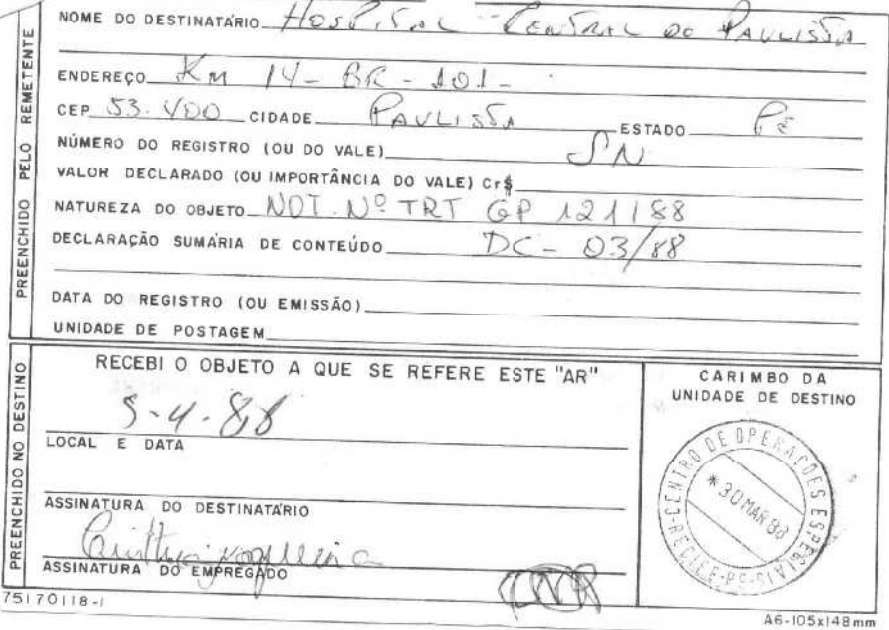 NOME DO DESTINATÁRIO Hospital Central do Paulista
ENDEREÇO Km 14 - BR - 101 -
CEP 53.400 CIDADE Paulista ESTADO Pe
NÚMERO DO REGISTRO (OU DO VALE) SN
VALOR DECLARADO (OU IMPORTÂNCIA DO VALE) Cr$
NATUREZA DO OBJETO NOT. Nº TRT GP 121/88
DECLARAÇÃO SUMÁRIA DE CONTEÚDO DC - 03/88
DATA DO REGISTRO (OU EMISSÃO)
UNIDADE DE POSTAGEM
PREENCHIDO PELO REMETENTE
RECEBI O OBJETO A QUE SE REFERE ESTE "AR"
5-4-88
LOCAL E DATA
ASSINATURA DO DESTINATÁRIO
ASSINATURA DO EMPREGADO
PREENCHIDO NO DESTINO
CARIMBO DA
UNIDADE DE DESTINO
CENTRO DE OPERAÇÕES ESPECIAIS
* 30 MAR 88
RECIFE-PE
75170118-1
A6-105x148mm